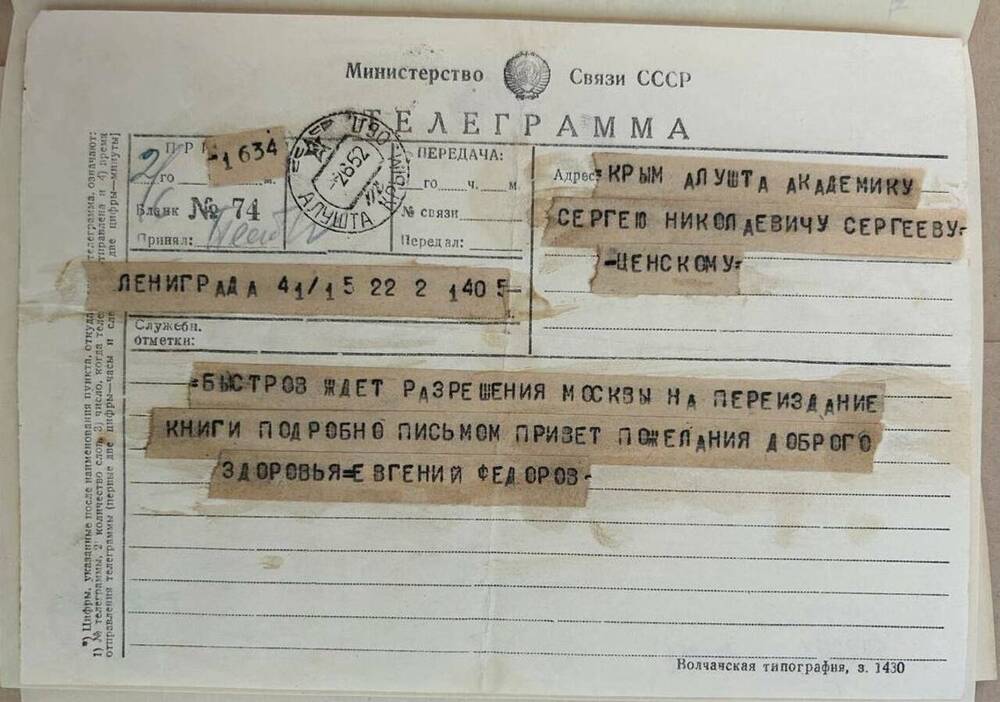 Министерство Связи СССР
ТЕЛЕГРАММА
1634
го м.
Бланк № 74
Принял:
АЛУШТА
2652
КРЫМ
ПЕРЕДАЧА:
го ч. м
№ связи
Передал:
Адрес =КРЫМ АЛУШТА АКАДЕМИКУ
СЕРГЕЮ НИКОЛАЕВИЧУ СЕРГЕЕВУ=
-ЦЕНСКОМУ=
ЛЕНИГРАДА 41/15 22 2 1405-
Служебн.
отметки:
=БЫСТРОВ ЖДЕТ РАЗРЕШЕНИЯ МОСКВЫ НА ПЕРЕИЗДАНИЕ
КНИГИ ПОДРОБНО ПИСЬМОМ ПРИВЕТ ПОЖЕЛАНИЯ ДОБРОГО
ЗДОРОВЬЯ=ЕВГЕНИЙ ФЕДОРОВ-
*) Цифры, указанные после наименования пункта, откуда телеграмма, означают:
1) № телеграммы, 2 количество слов, 3) число, когда отправлена и 4) время
отправления телеграммы (первые две цифры—часы и две цифры—минуты)
Волчанская типография, з. 1430